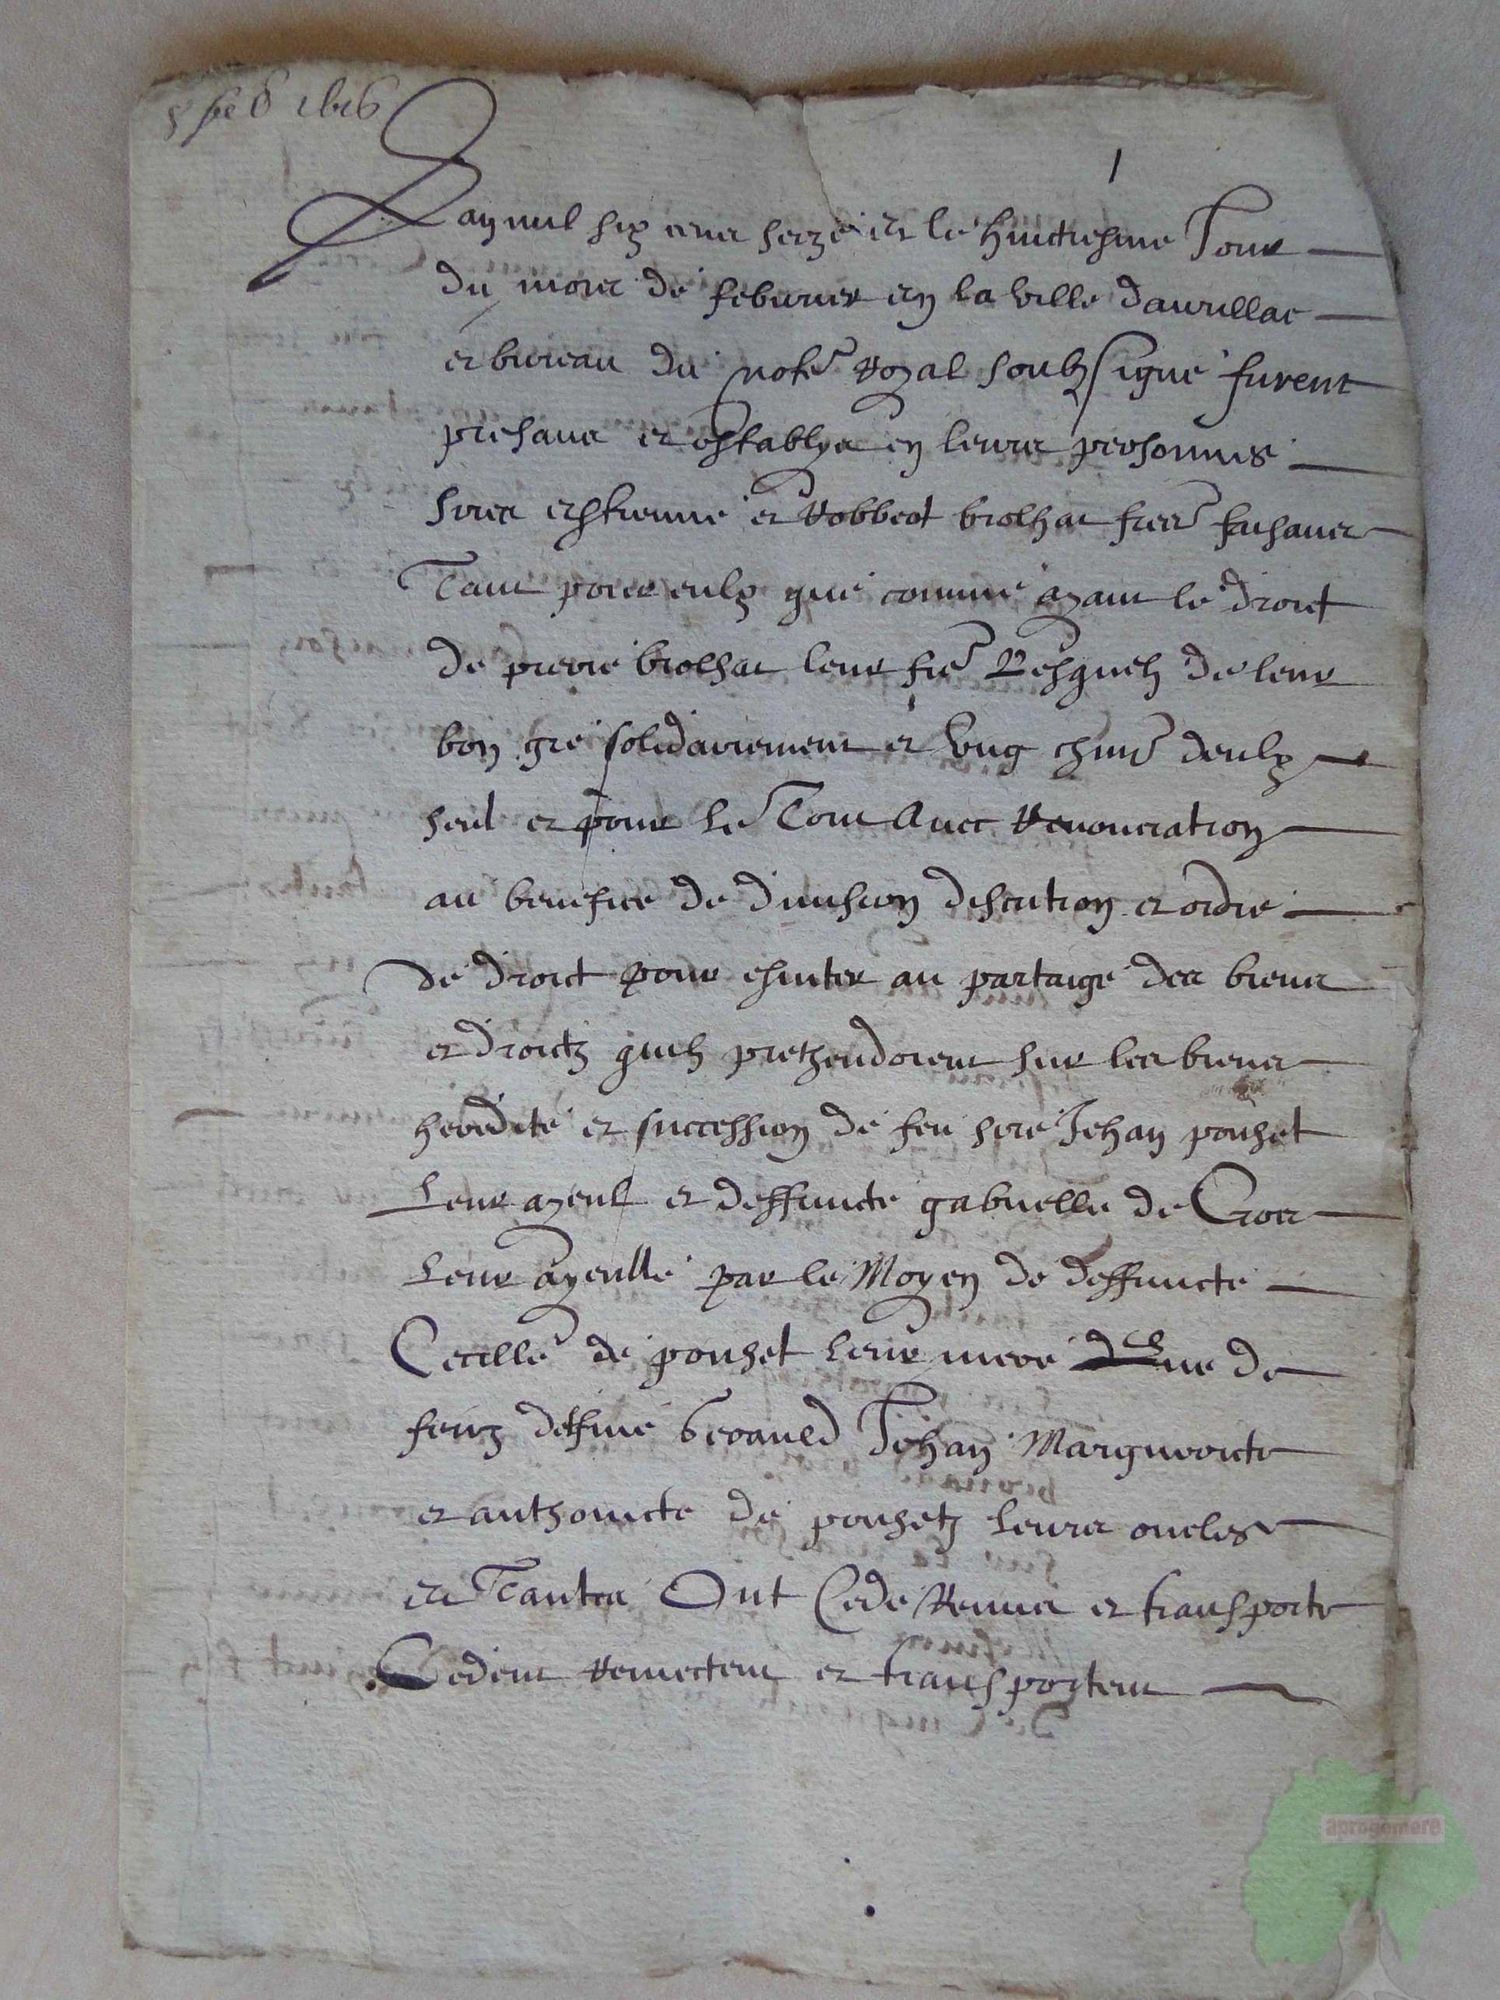 8 feb 1616
1
Lan mil six cens seize et le huictiesme Jour
du mois de febvrier en la ville daurillac
et bureau du notre royal soubzsigné furent
presans et establys en leurs personnes
sires estienne et Robbert brolhat freres faisans
Tant pour eulx que comme ayant le droict
de pierre brolhat leur frere Lesquelz de leur
bon gré solidairement et Ung chun deulx
seul et pour le Tout Avec Renonciation
au benefice de division discution et ordre
de droict pour esviter au partaige des biens
et droictz quilz prethendoient sur les biens
heredité et succession de feu sire Jehan pouhet
Leur ayeul et deffuncte gabrielle de Cros
Leur ayeulle par le Moyen de deffuncte
Cecille de pouhet leur mere que de
feuz Geraued Jehan Marguerite
et anthoinete de pouhetz leurs oncles
et Tantes Ont Cede Remis et transporte
Cedent remectent et transportent
aprogemere